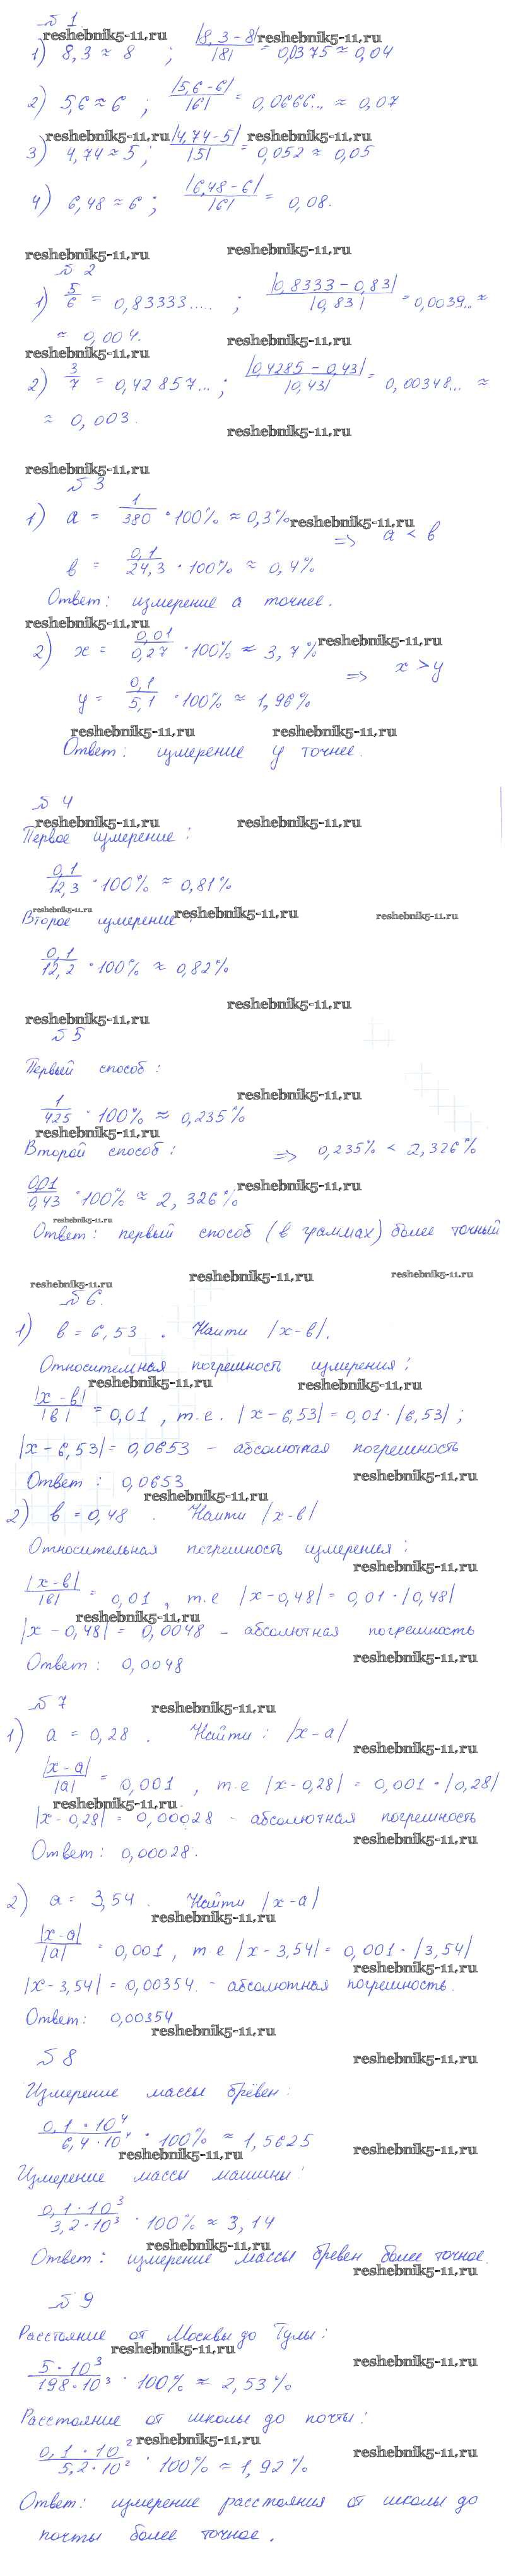 № 1
reshebnik5-11,ru
1) 8,3 ≈ 8 ; |8,3 - 8|/|8| = 0,0375 ≈ 0,04
reshebnik5-11,ru
2) 5,6 ≈ 6 ; |5,6 - 6|/|6| = 0,0666... ≈ 0,07
reshebnik5-11,ru reshebnik5-11,ru
3) 4,74 ≈ 5 ; |4,74 - 5|/|5| = 0,052 ≈ 0,05
4) 6,48 ≈ 6 ; |6,48 - 6|/|6| = 0,08.
reshebnik5-11,ru reshebnik5-11,ru
№ 2
1) 5/6 = 0,83333..... ; |0,8333 - 0,83|/|0,83| = 0,0039.. ≈
≈ 0,004.
reshebnik5-11,ru reshebnik5-11,ru
2) 3/7 = 0,42857... ; |0,4285 - 0,43|/|0,43| = 0,00348... ≈
≈ 0,003.
reshebnik5-11,ru
reshebnik5-11,ru
№ 3
1) a = 1/380 · 100% ≈ 0,3%
reshebnik5-11,ru
=> a < в
в = 0,1/24,3 · 100% ≈ 0,4%
Ответ: измерение а точнее.
reshebnik5-11,ru
2) x = 0,01/0,27 · 100% ≈ 3,7%
reshebnik5-11,ru
=> x > y
y = 0,1/5,1 · 100% ≈ 1,96%
reshebnik5-11,ru reshebnik5-11,ru
Ответ: измерение y точнее.
№ 4
reshebnik5-11,ru reshebnik5-11,ru
Первое измерение:
0,1/12,3 · 100% ≈ 0,81%
reshebnik5-11.ru reshebnik5-11,ru reshebnik5-11.ru
Второе измерение:
0,1/12,2 · 100% ≈ 0,82%
reshebnik5-11,ru
reshebnik5-11,ru
№ 5
Первый способ:
reshebnik5-11,ru
1/425 · 100% ≈ 0,235%
reshebnik5-11,ru
Второй способ: => 0,235% < 2,326%
0,01/0,43 · 100% ≈ 2,326%
reshebnik5-11,ru
reshebnik5-11.ru
Ответ: первый способ (в граммах) более точный
reshebnik5-11.ru reshebnik5-11,ru reshebnik5-11.ru
№ 6.
1) в = 6,53 . Найти |x-в|.
Относительная погрешность измерения:
reshebnik5-11,ru reshebnik5-11,ru
|x-в|/|в| = 0,01 , т.е. |x-6,53| = 0,01 · |6,53| ;
|x-6,53| = 0,0653 - абсолютная погрешность
Ответ: 0,0653
reshebnik5-11,ru
reshebnik5-11,ru
2) в = 0,48 . Найти |x-в|
Относительная погрешность измерения:
reshebnik5-11,ru
|x-в|/|в| = 0,01 , т.е |x-0,48| = 0,01 · |0,48|
reshebnik5-11,ru
|x-0,48| = 0,0048 - абсолютная погрешность
Ответ: 0,0048
reshebnik5-11,ru
№ 7
reshebnik5-11,ru
1) a = 0,28 . Найти: |x-a|
reshebnik5-11,ru
|x-a|/|a| = 0,001 , т.е |x-0,28| = 0,001 · |0,28|
reshebnik5-11,ru
|x-0,28| = 0,00028 - абсолютная погрешность
reshebnik5-11,ru
Ответ: 0,00028.
2) a = 3,54 . Найти |x-a|
reshebnik5-11,ru
|x-a|/|a| = 0,001 , т е |x-3,54| = 0,001 · |3,54|
reshebnik5-11,ru
|x-3,54| = 0,00354. - абсолютная погрешность.
Ответ: 0,00354
reshebnik5-11,ru
№ 8
reshebnik5-11,ru
Измерение массы брёвен:
0,1 · 10⁴/6,4 · 10⁴ · 100% ≈ 1,5625
reshebnik5-11,ru
reshebnik5-11,ru
Измерение массы машины:
0,1 · 10³/3,2 · 10³ · 100% ≈ 3,14
reshebnik5-11,ru
Ответ: измерение массы бревен более точное.
reshebnik5-11,ru
№ 9
Расстояние от Москвы до Тулы:
reshebnik5-11,ru
reshebnik5-11,ru
5 · 10³/198 · 10³ · 100% ≈ 2,53%
Расстояние от школы до почты:
reshebnik5-11,ru
reshebnik5-11,ru
0,1 · 10²/5,2 · 10² · 100% ≈ 1,92%
Ответ: измерение расстояния от школы до
почты более точное.